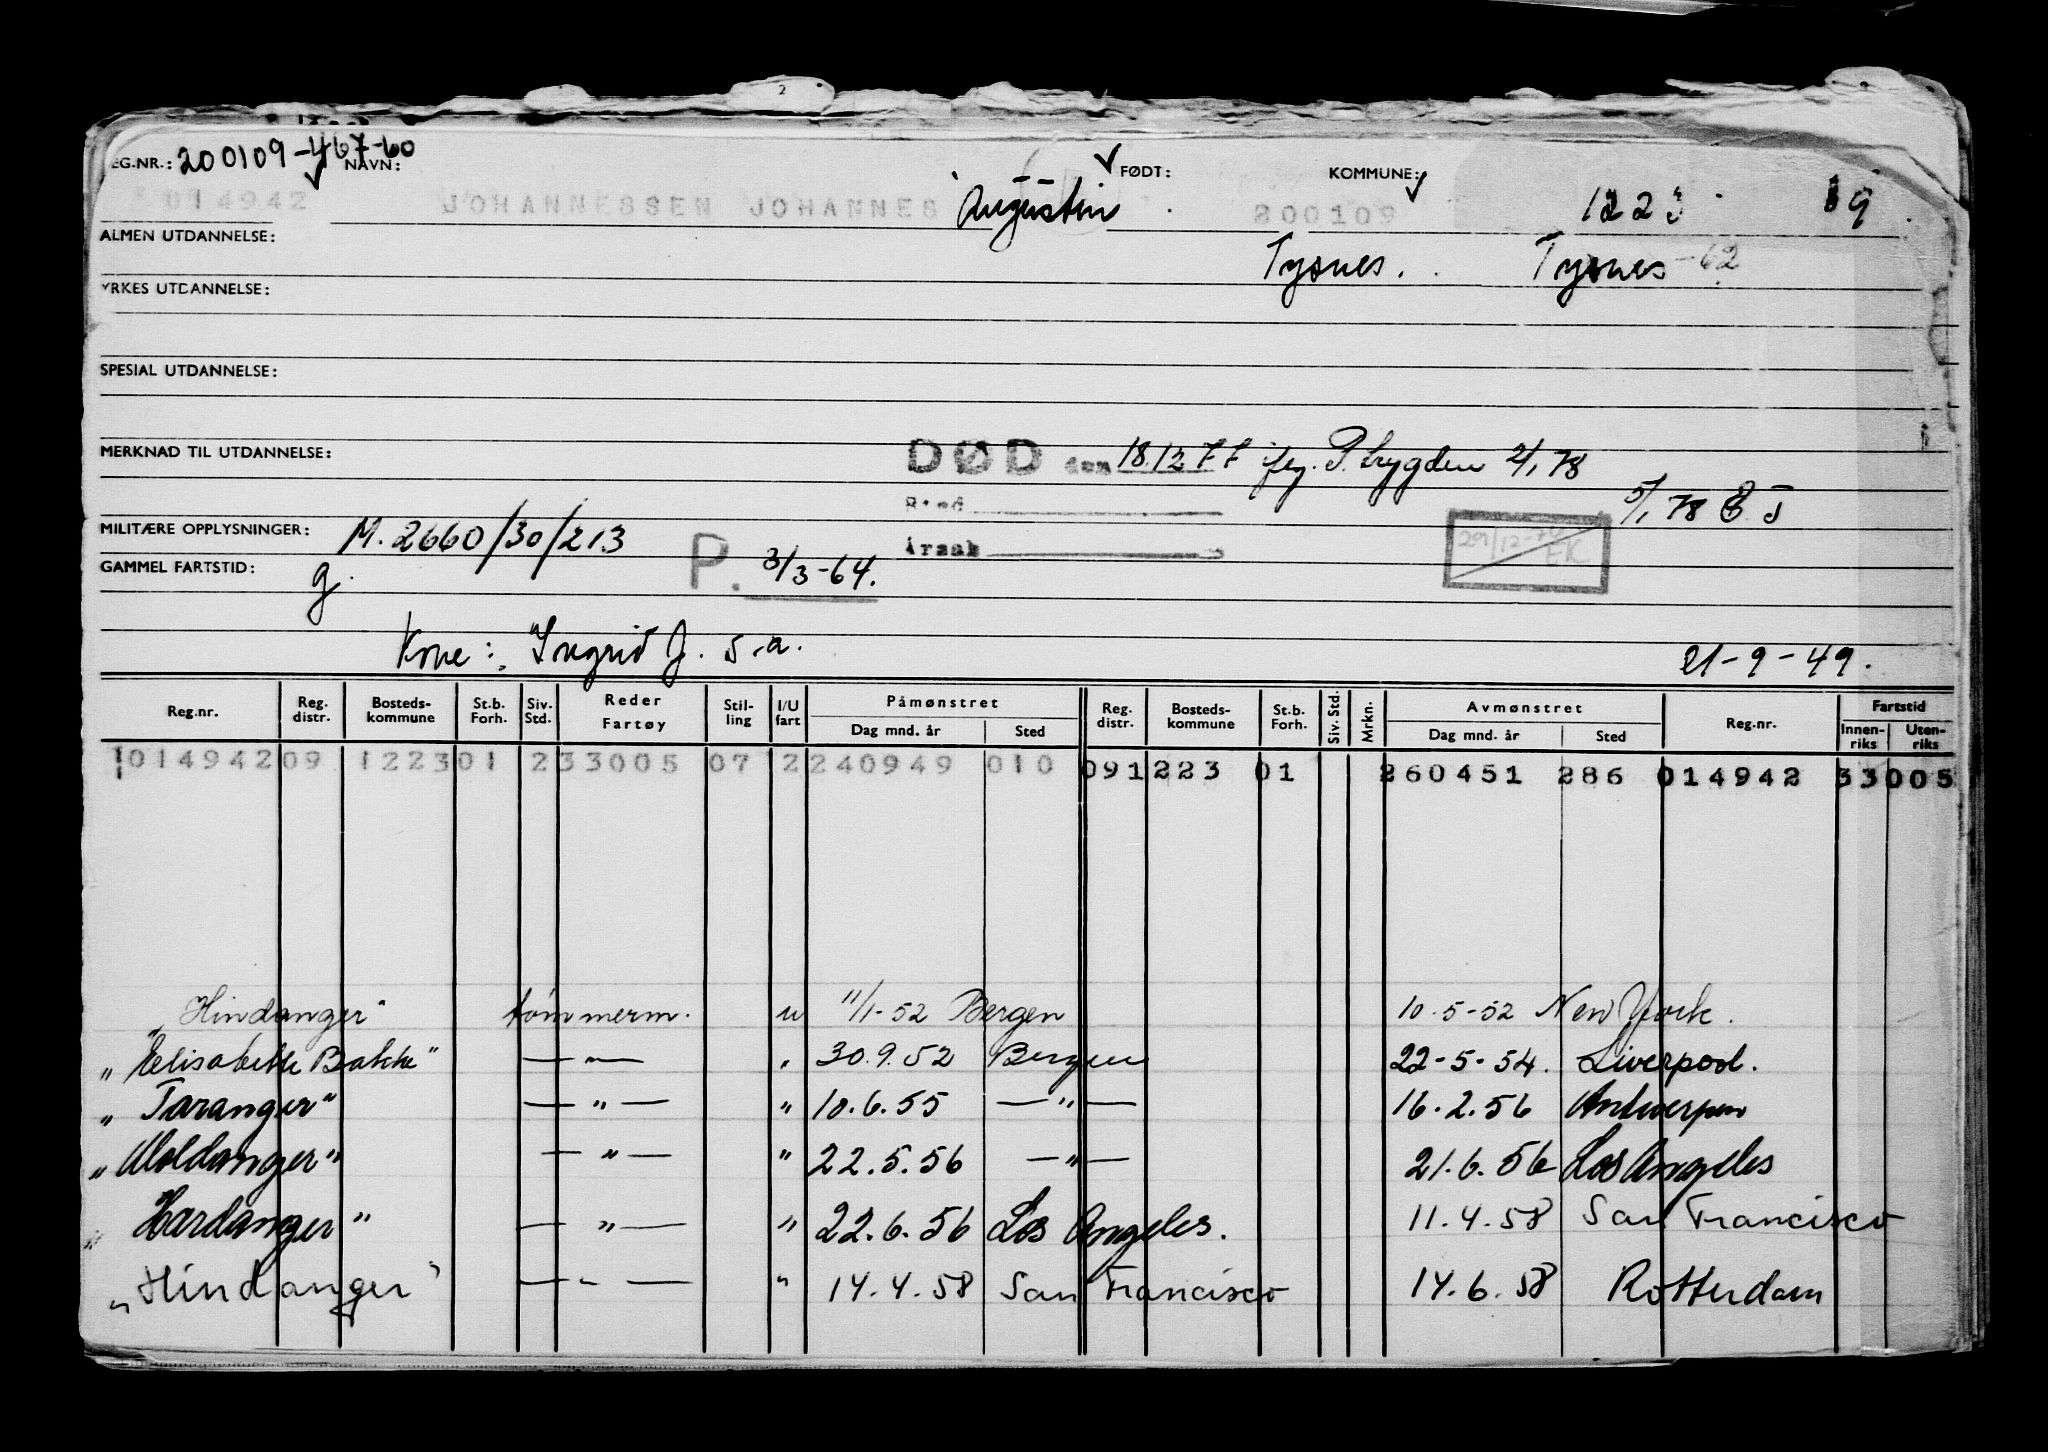 2
REG.NR.: 200109-467-60 NAVN: FØDT: KOMMUNE:
014942 JOHANNESSEN JOHANNES Augustin 200109 1223 19
ALMEN UTDANNELSE: Tysnes. Tysnes -62
YRKES UTDANNELSE:
SPESIAL UTDANNELSE:
MERKNAD TIL UTDANNELSE: DØD den 18.12.77 flg. P. trygden 2/1 78
Sted 5/1 78 E J
MILITÆRE OPPLYSNINGER: M. 2660/30/213 P. 3/3-64. Årsak 29/12-77 EK
GAMMEL FARTSTID: g.
Kone: Ingrid J. s.a. 21-9-49.
Reg.nr. Reg. distr. Bosteds-kommune St.b. Forh. Siv. Std. Reder Fartøy Stil-ling I/U fart Påmønstret Dag mnd. år Sted Reg. distr. Bosteds-kommune St.b. Forh. Siv. Std. Mrkn. Avmønstret Dag mnd. år Sted Reg.nr. Fartstid Innen-riks Uten-riks
1014942 09 1223 01 2 33005 07 2 240949 010 09 1223 01 260451 286 014942 33005
"Hindanger" tømmerm. u 11/1-52 Bergen 10.5-52 New York.
"Elisabeth Bakke" — " — " 30.9.52 Bergen 22-5-54. Liverpool.
"Taranger" — " — " 10.6.55 — " — 16.2.56 Antwerpen
"Moldanger" — " — " 22.5.56 — " — 21.6.56 Los Angeles
"Hardanger" — " — " 22.6.56 Los Angeles. 11.4.58 San Francisco
"Hindanger" — " — " 14.4.58 San Francisco 14.6.58 Rotterdam